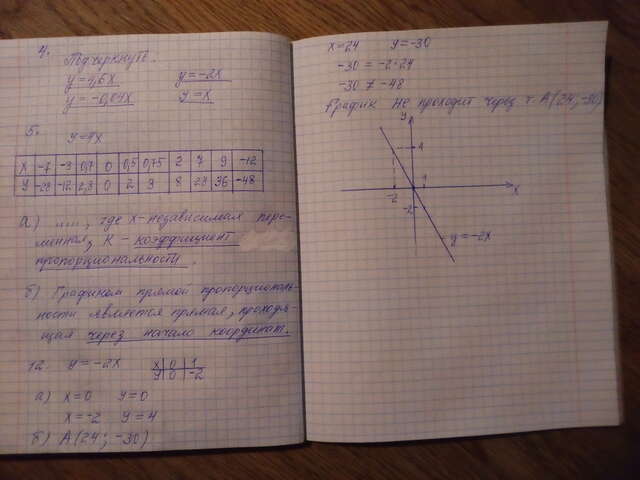 4.
Подчеркнуто.
y = 4,6x y = -2x
y = -0,04x y = x
5.
y = 4x
x -7 -3 0,7 0 0,5 0,75 2 7 9 -12
y -28 -12 2,8 0 2 3 8 28 36 -48
а) ....., где x - независимая пере-
менная, K - коэффициент
пропорциональности.
б) Графиком прямой пропорциональ-
ности является прямая, проходя-
щая через начало координат.
12. y = -2x x 0 1
y 0 -2
а) x = 0 y = 0
x = -2 y = 4
б) A(24; -30)
x = 24 y = -30
-30 = -2·24
-30 ≠ -48
График не проходит через т. A(24; -30)
y
4
-2 1 x
-2
y = -2x